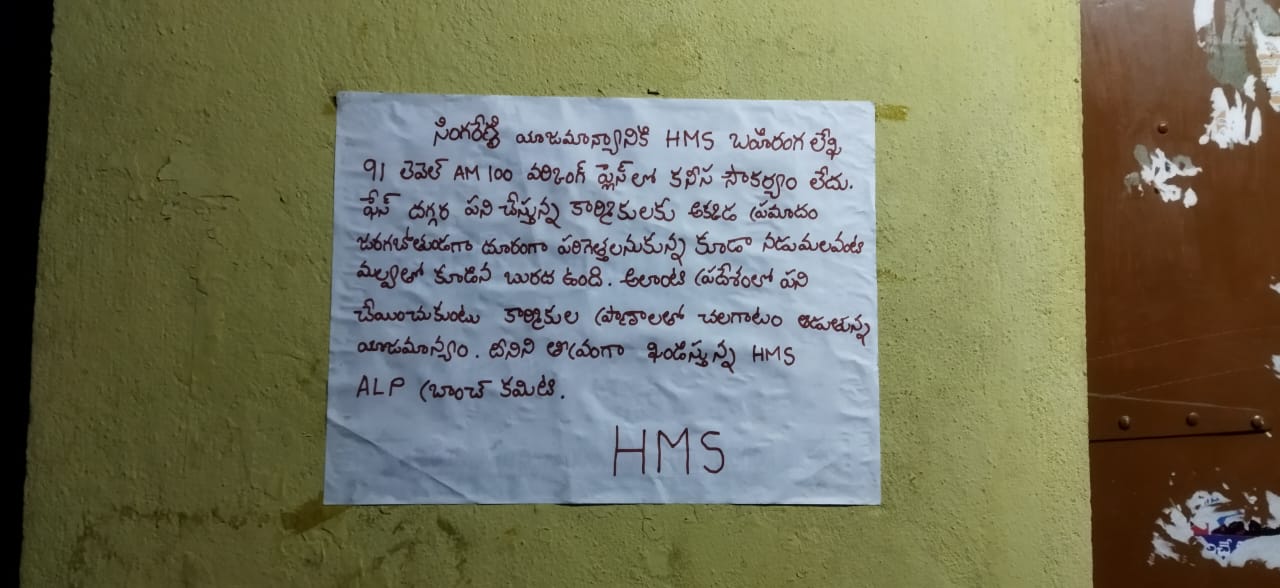 సింగరేణి యాజమాన్యానికి HMS బహిరంగ లేఖ
91 లెవెల్ AM 100 వర్కింగ్ ప్లేస్ లో కనీస సౌకర్యం లేదు.
ఫేస్ దగ్గర పని చేస్తున్న కార్మికులకు అక్కడ ప్రమాదం
జరగబోతుండగా దూరంగా పరిగెత్తలనుకున్న కూడా నడుములవంటి
మల్వతో కూడిన బురద ఉంది. అలాంటి ప్రదేశంలో పని
చేయించుకుంటు కార్మికుల ప్రాణాలతో చలగాటం ఆడుతున్న
యాజమాన్యం. దీనిని తీవ్రంగా ఖండిస్తున్న HMS
ALP బ్రాంచ్ కమిటి.
HMS